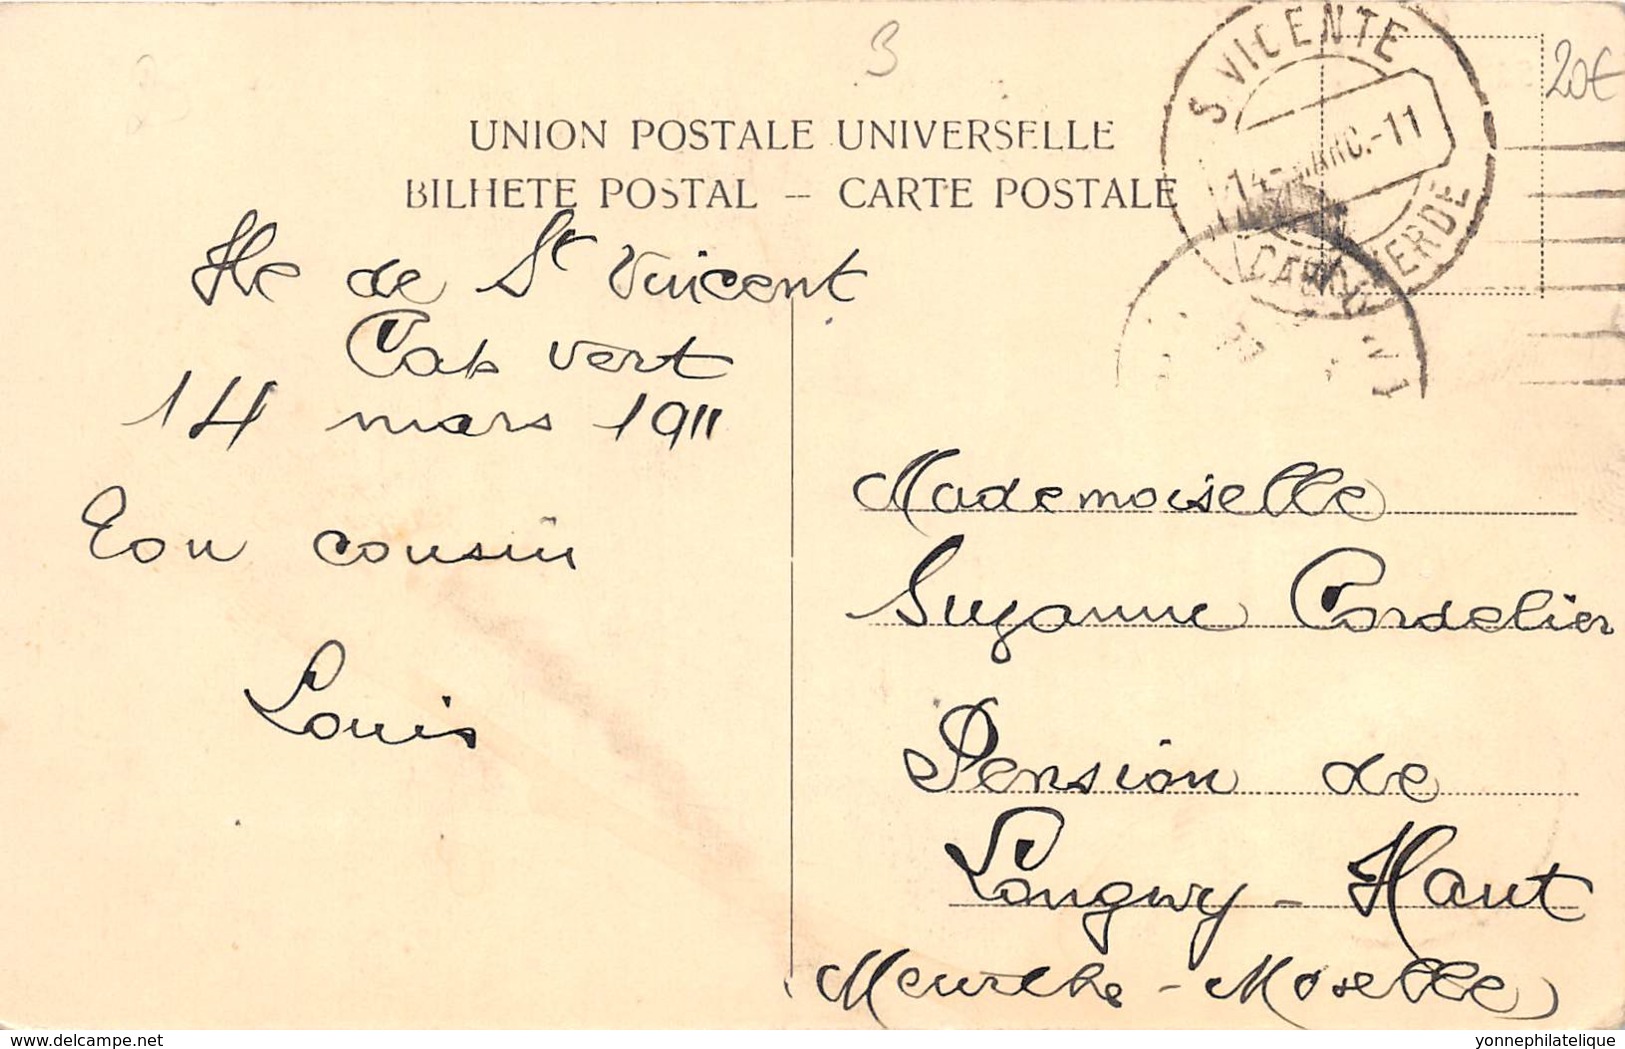 3
20€
UNION POSTALE UNIVERSELLE
BILHETE POSTAL -- CARTE POSTALE
S. VICENTE
14-MARC.-11
CABO VERDE
Ile de St Vincent
Cap vert
14 mars 1911
Ton cousin
Louis
Mademoiselle
Suzanne Cordelier
Pension de
Longwy - Haut
Meurthe - Moselle
www.delcampe.net
yonnephilatelique